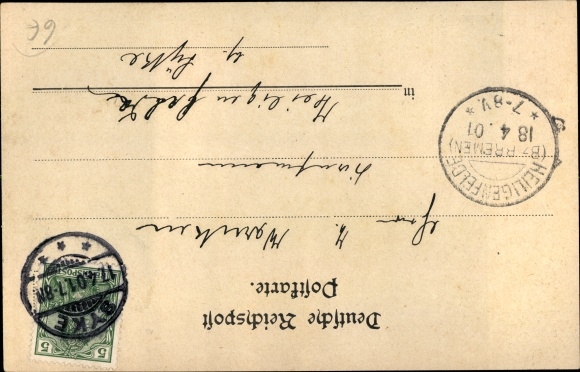 Deutsche Reichspost
Postkarte.
Herrn H. Warnken
Kaufmann
in Heiligenfelde
b/ Syke
HEILIGENFELDE
(BZ. BREMEN)
18 4. 01
* 7-8V. *
SYKE
17.4.01.7-8N
* * *
5